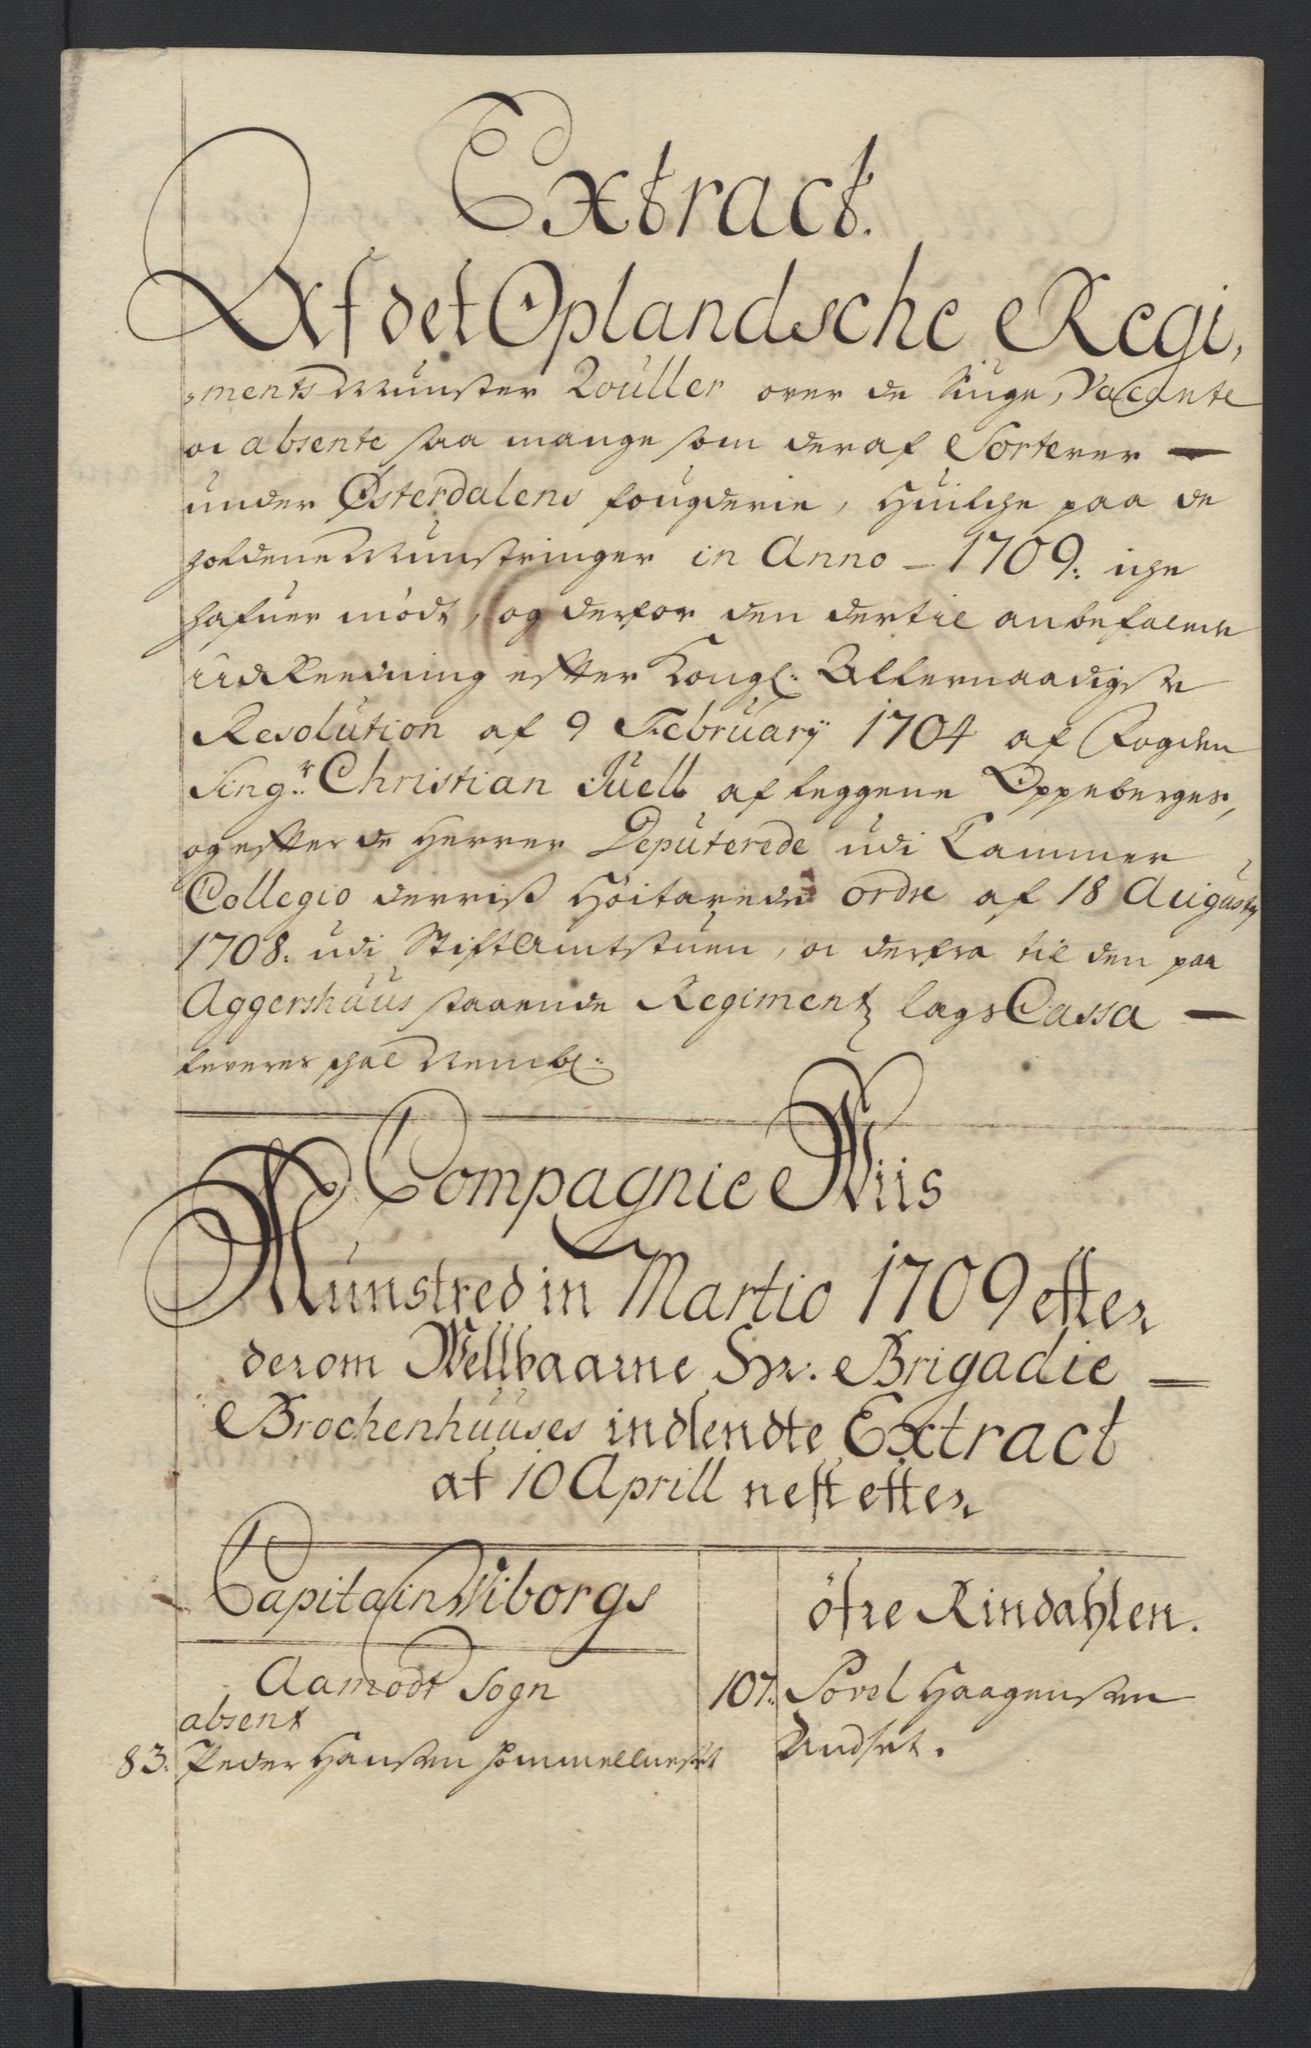 Extract.
Af det Oplandsche Regi,
ments Munster Rouller over de Siuge, Vacante
oc absente saa mange som deraf Sorterer —
under Østerdalens fougderie, Huilche paa de
holdene Munstringer in Anno — 1709: iche
hafuer mødt, og derfor den dertil anbefalede
Udreedning efter Kongl: Allernaadigste
Resolution af 9 February 1704 af Fogden
Sing.r Christian Juell aflæggene Oppeberges,
og efter de Herrer Deputerede udi Cammer
Collegio derriss Høitærede ordre af 18 Augusty
1708. udi StiftAmtstuen, oc derfra til den paa
Aggershuus staaende Regiments lags Cassa —
leveres schal Nembl:
Compagnie Viis
Munstred in Martio 1709 efter
derom Wellbaarne Hr. Brigadie —
Brochenhuuses indsendte Extract
af 10 Aprill nest efter
Capitain Wiborgs
Aamodt Sogn
absent
83. Peder Hansen
öfre Rindahlen.
107. Povel Haagensen
Undset.